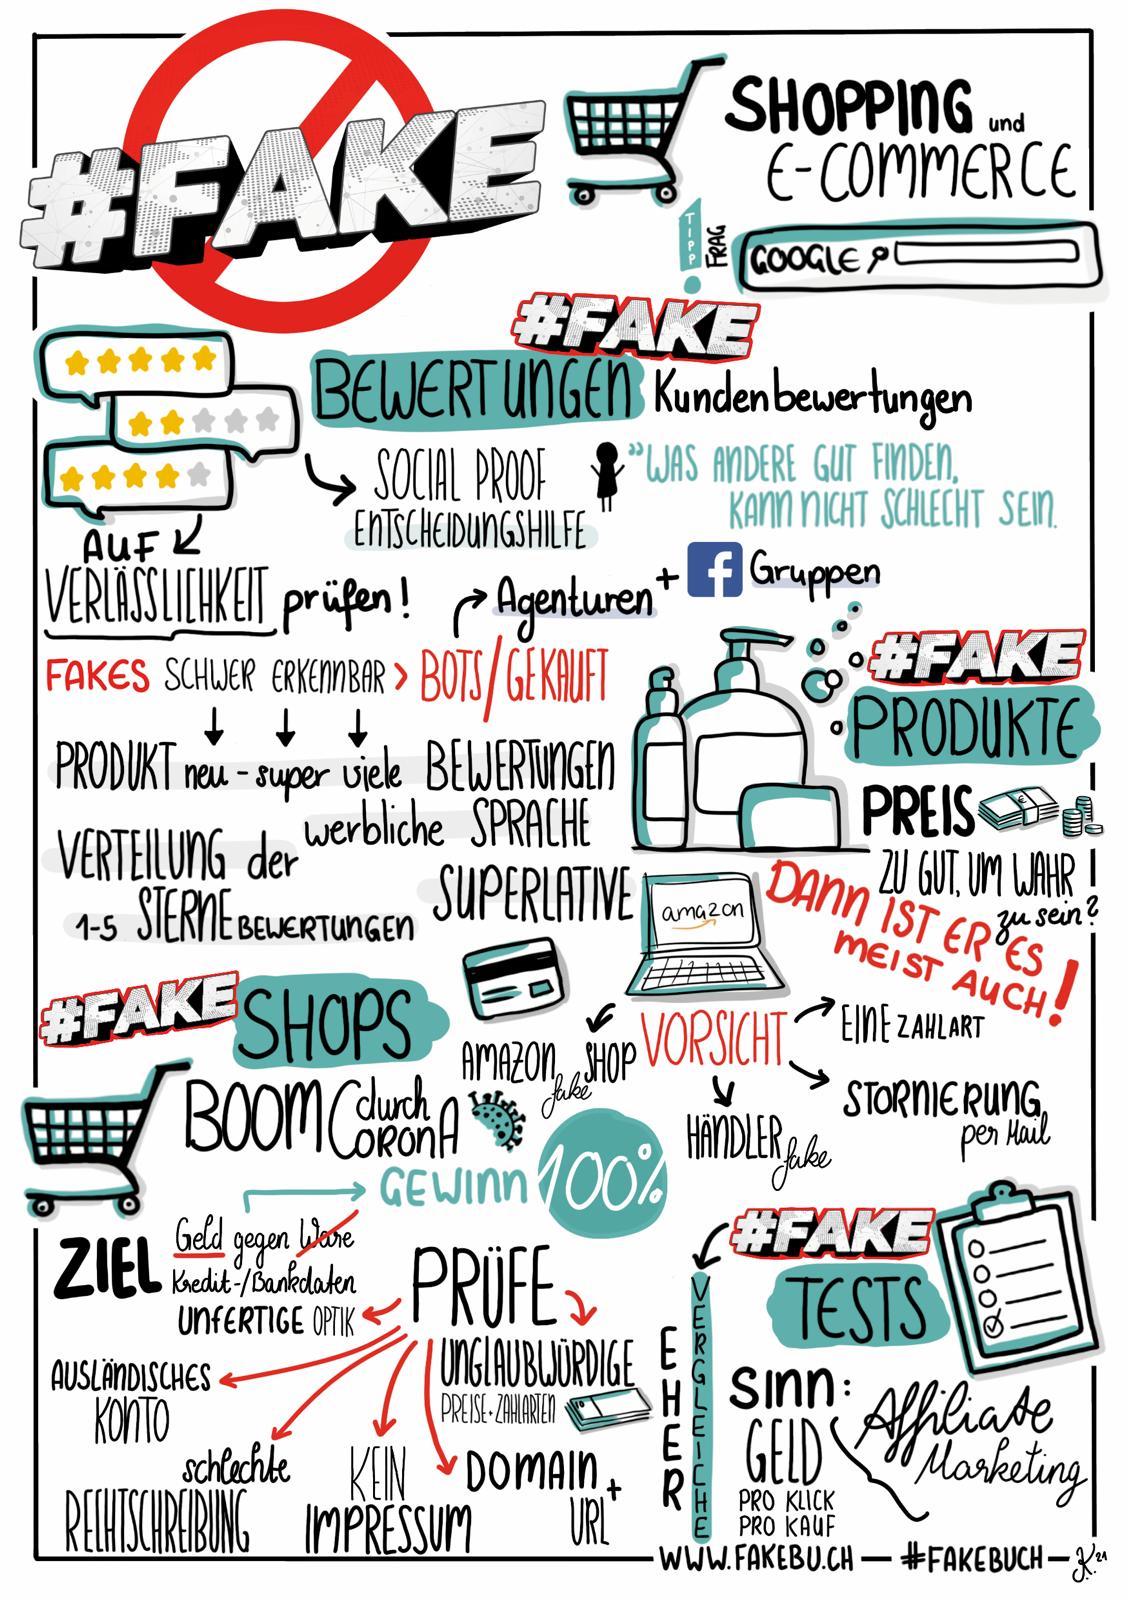 #FAKE
SHOPPING und
E-COMMERCE
TIPP
FRAG
GOOGLE
#FAKE
BEWERTUNGEN Kundenbewertungen
SOCIAL PROOF
ENTSCHEIDUNGSHILFE
"WAS ANDERE GUT FINDEN,
KANN NICHT SCHLECHT SEIN.
AUF
VERLÄSSLICHKEIT prüfen!
Agenturen + f Gruppen
FAKES SCHWER ERKENNBAR > BOTS/GEKAUFT
PRODUKT neu - super viele BEWERTUNGEN
werbliche SPRACHE
VERTEILUNG der
1-5 STERNE BEWERTUNGEN
SUPERLATIVE
#FAKE
PRODUKTE
PREIS
ZU GUT, UM WAHR
zu sein?
DANN IST ER ES
MEIST AUCH!
amazon
#FAKE
SHOPS
BOOM durch
CORONA
AMAZON SHOP
fake
VORSICHT
EINE ZAHLART
STORNIERUNG
per Mail
HÄNDLER
fake
GEWINN 100%
ZIEL
Geld gegen Ware
Kredit-/Bankdaten
PRÜFE
UNFERTIGE OPTIK
AUSLÄNDISCHES
KONTO
schlechte
RECHTSCHREIBUNG
KEIN
IMPRESSUM
UNGLAUBWÜRDIGE
PREISE + ZAHLARTEN
DOMAIN +
URL
#FAKE
TESTS
EHER
VERGLEICHE
SINN:
GELD
PRO KLICK
PRO KAUF
Affiliate
Marketing
WWW.FAKEBU.CH — #FAKEBUCH — J.K. 21